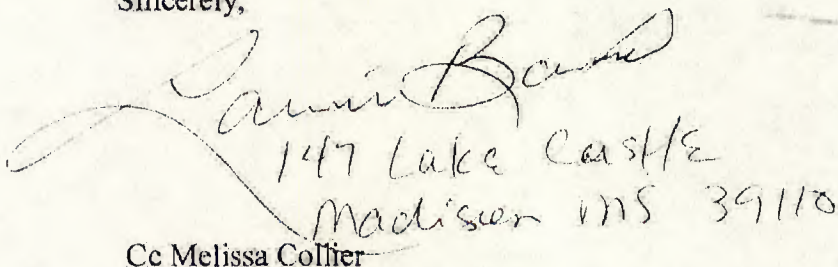 Sincerely,
147 Lake Castle
Madison MS 39110
Cc Melissa Collier